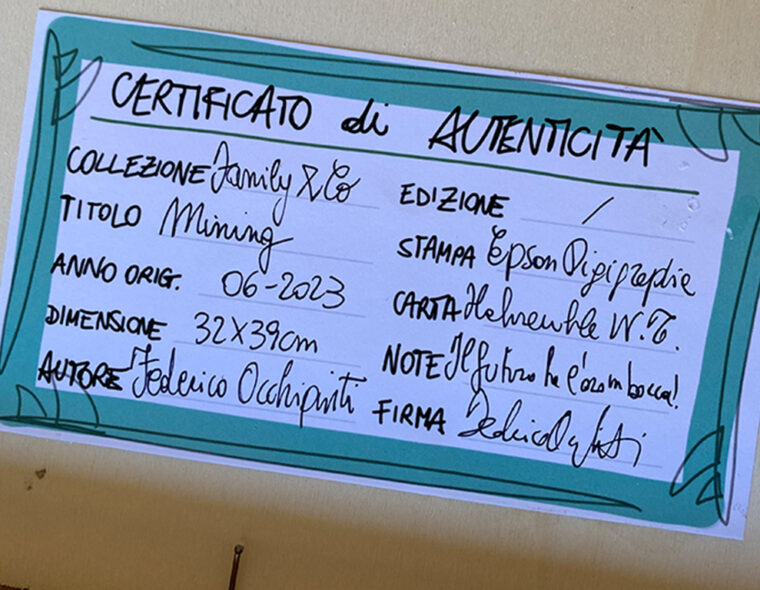 CERTIFICATO di AUTENTICITÀ
COLLEZIONE Family & Co
TITOLO Mining
ANNO ORIG. 06-2023
DIMENSIONE 32X39cm
AUTORE Federico Occhipinti
EDIZIONE /
STAMPA Epson Digigraphie
CARTA Hahnemühle W.T.
NOTE Il futuro ha l'oro in bocca!
FIRMA